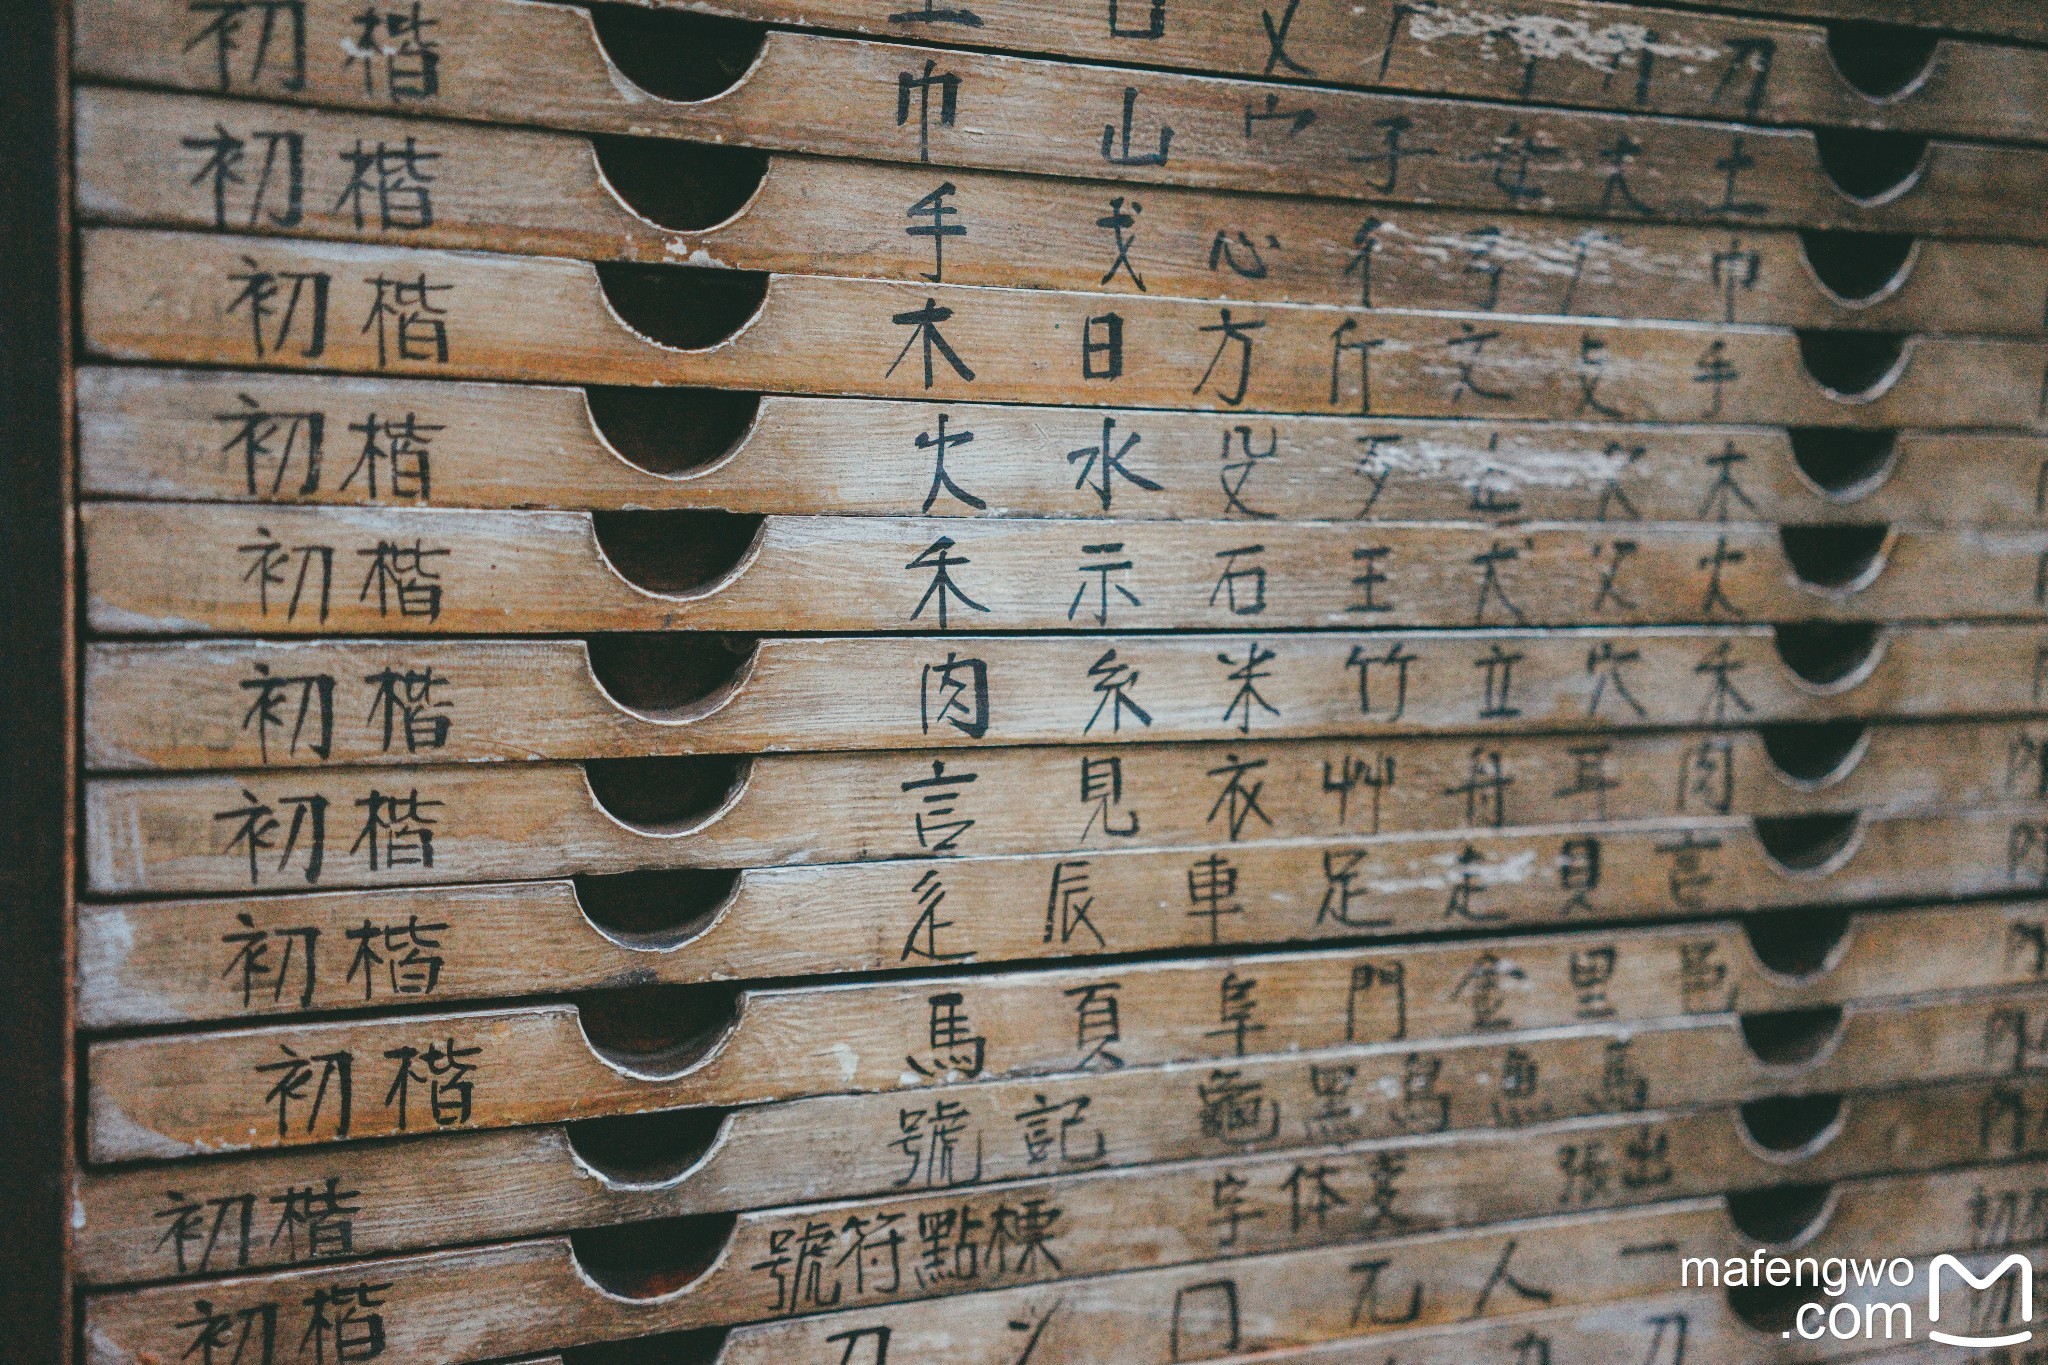 初楷 土 口 又 刀
初楷 巾 山 宀 子 女 大 土
初楷 手 戈 心 彳 巾
初楷 木 日 方 斤 文 攴 手
初楷 火 水 殳 歹 止 欠 木
初楷 禾 示 石 王 犬 父 火
初楷 肉 糸 米 竹 立 穴 禾
初楷 言 見 衣 艸 舟 耳 肉
初楷 辵 辰 車 足 走 貝 言
初楷 馬 頁 阜 門 金 里 邑
初楷 號記 龜 黑 鳥 魚 馬
初楷 號符點標 字体変 張出
刀 冂 儿 人 一
mafengwo
.com